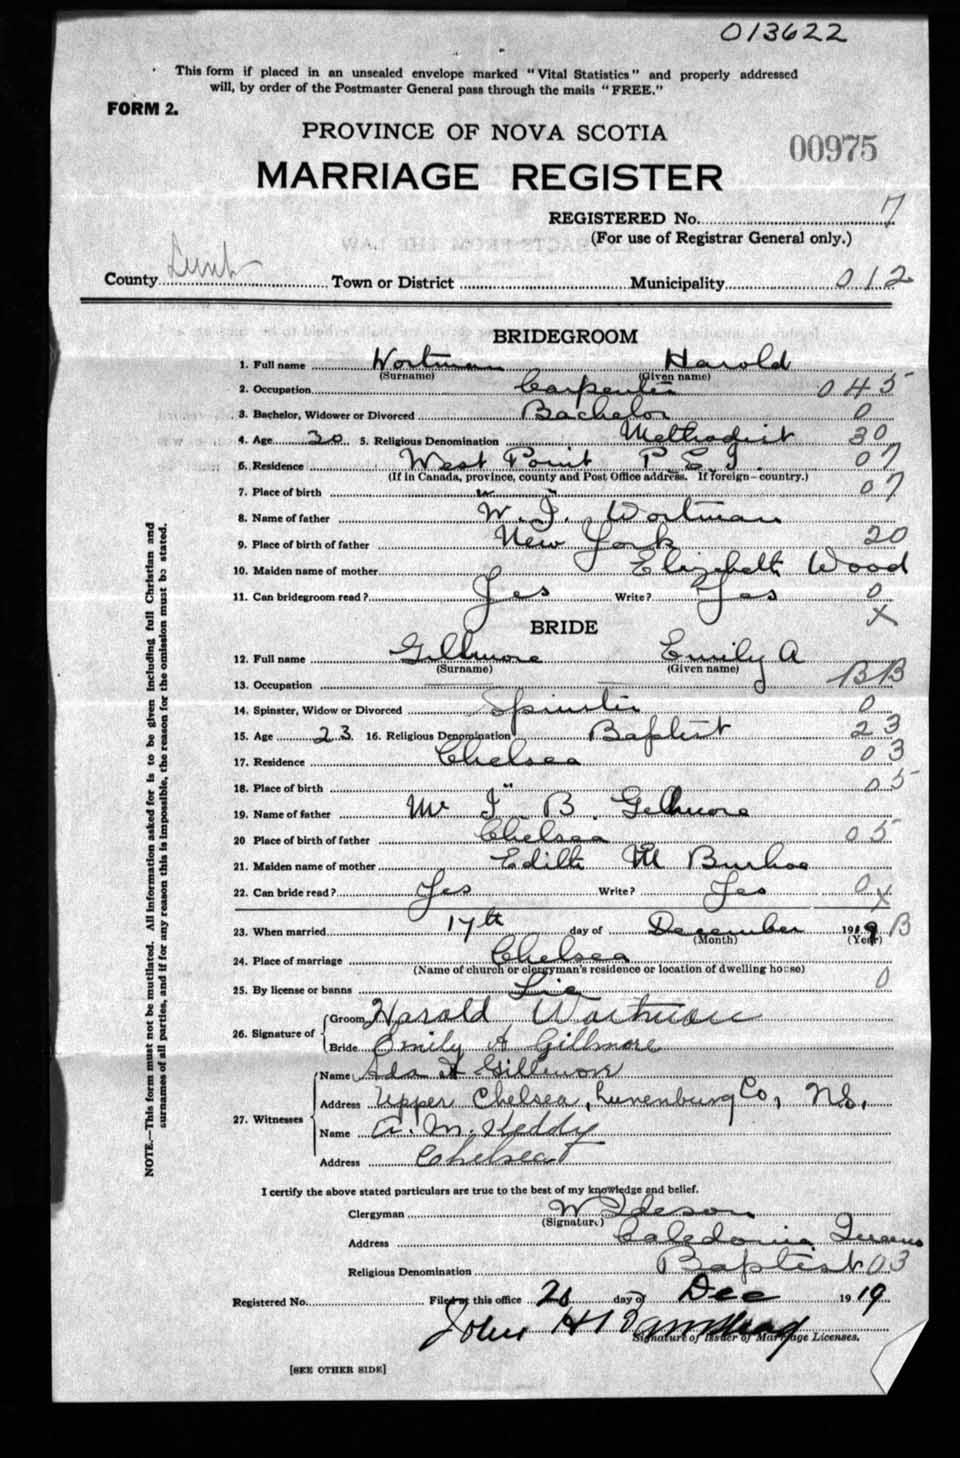 013622
This form if placed in an unsealed envelope marked "Vital Statistics" and properly addressed
will, by order of the Postmaster General pass through the mails "FREE."
FORM 2.
PROVINCE OF NOVA SCOTIA
00975
MARRIAGE REGISTER
REGISTERED No. 7
(For use of Registrar General only.)
County Lunb Town or District Municipality 012
BRIDEGROOM
1. Full name Wortman Harold
(Surname) (Given name)
2. Occupation Carpenter 045
3. Bachelor, Widower or Divorced Bachelor 0
4. Age 30 5. Religious Denomination Methodist 30
6. Residence West Point P E I 07
(If in Canada, province, county and Post Office address. If foreign—country.)
7. Place of birth " " 07
8. Name of father W. J. Wortman
9. Place of birth of father New York 20
10. Maiden name of mother Elizabeth Wood
11. Can bridegroom read? Yes Write? Yes 0
X
BRIDE
12. Full name Gillmore Emily A
(Surname) (Given name)
13. Occupation BB
14. Spinster, Widow or Divorced Spinster 0
15. Age 23 16. Religious Denomination Baptist 23
17. Residence Chelsea 03
18. Place of birth " 05
19. Name of father Mr J B Gillmore
20 Place of birth of father Chelsea 05
21. Maiden name of mother Edith M
22. Can bride read? Yes Write? Yes 0 X
23. When married 17th day of December 1919 B
(Month) (Year)
24. Place of marriage Chelsea
(Name of church or clergyman's residence or location of dwelling house)
25. By license or banns Lic 0
26. Signature of Groom Harold Wortman
Bride Emily A Gillmore
27. Witnesses Name Ada A Gillmore
Address Upper Chelsea, Lunenburg Co, N.S.
Name A. M. Heddy
Address Chelsea
I certify the above stated particulars are true to the best of my knowledge and belief.
Clergyman W
(Signature)
Address Caledonia Queens
Religious Denomination Baptist 03
Registered No. Filed at this office 20 day of Dec 1919
John H
Signature of Issuer of Marriage Licenses.
[SEE OTHER SIDE]
NOTE.—This form must not be mutilated. All information asked for is to be given including full Christian and
surnames of all parties, and if for any reason this is impossible, the reason for the omission must be stated.